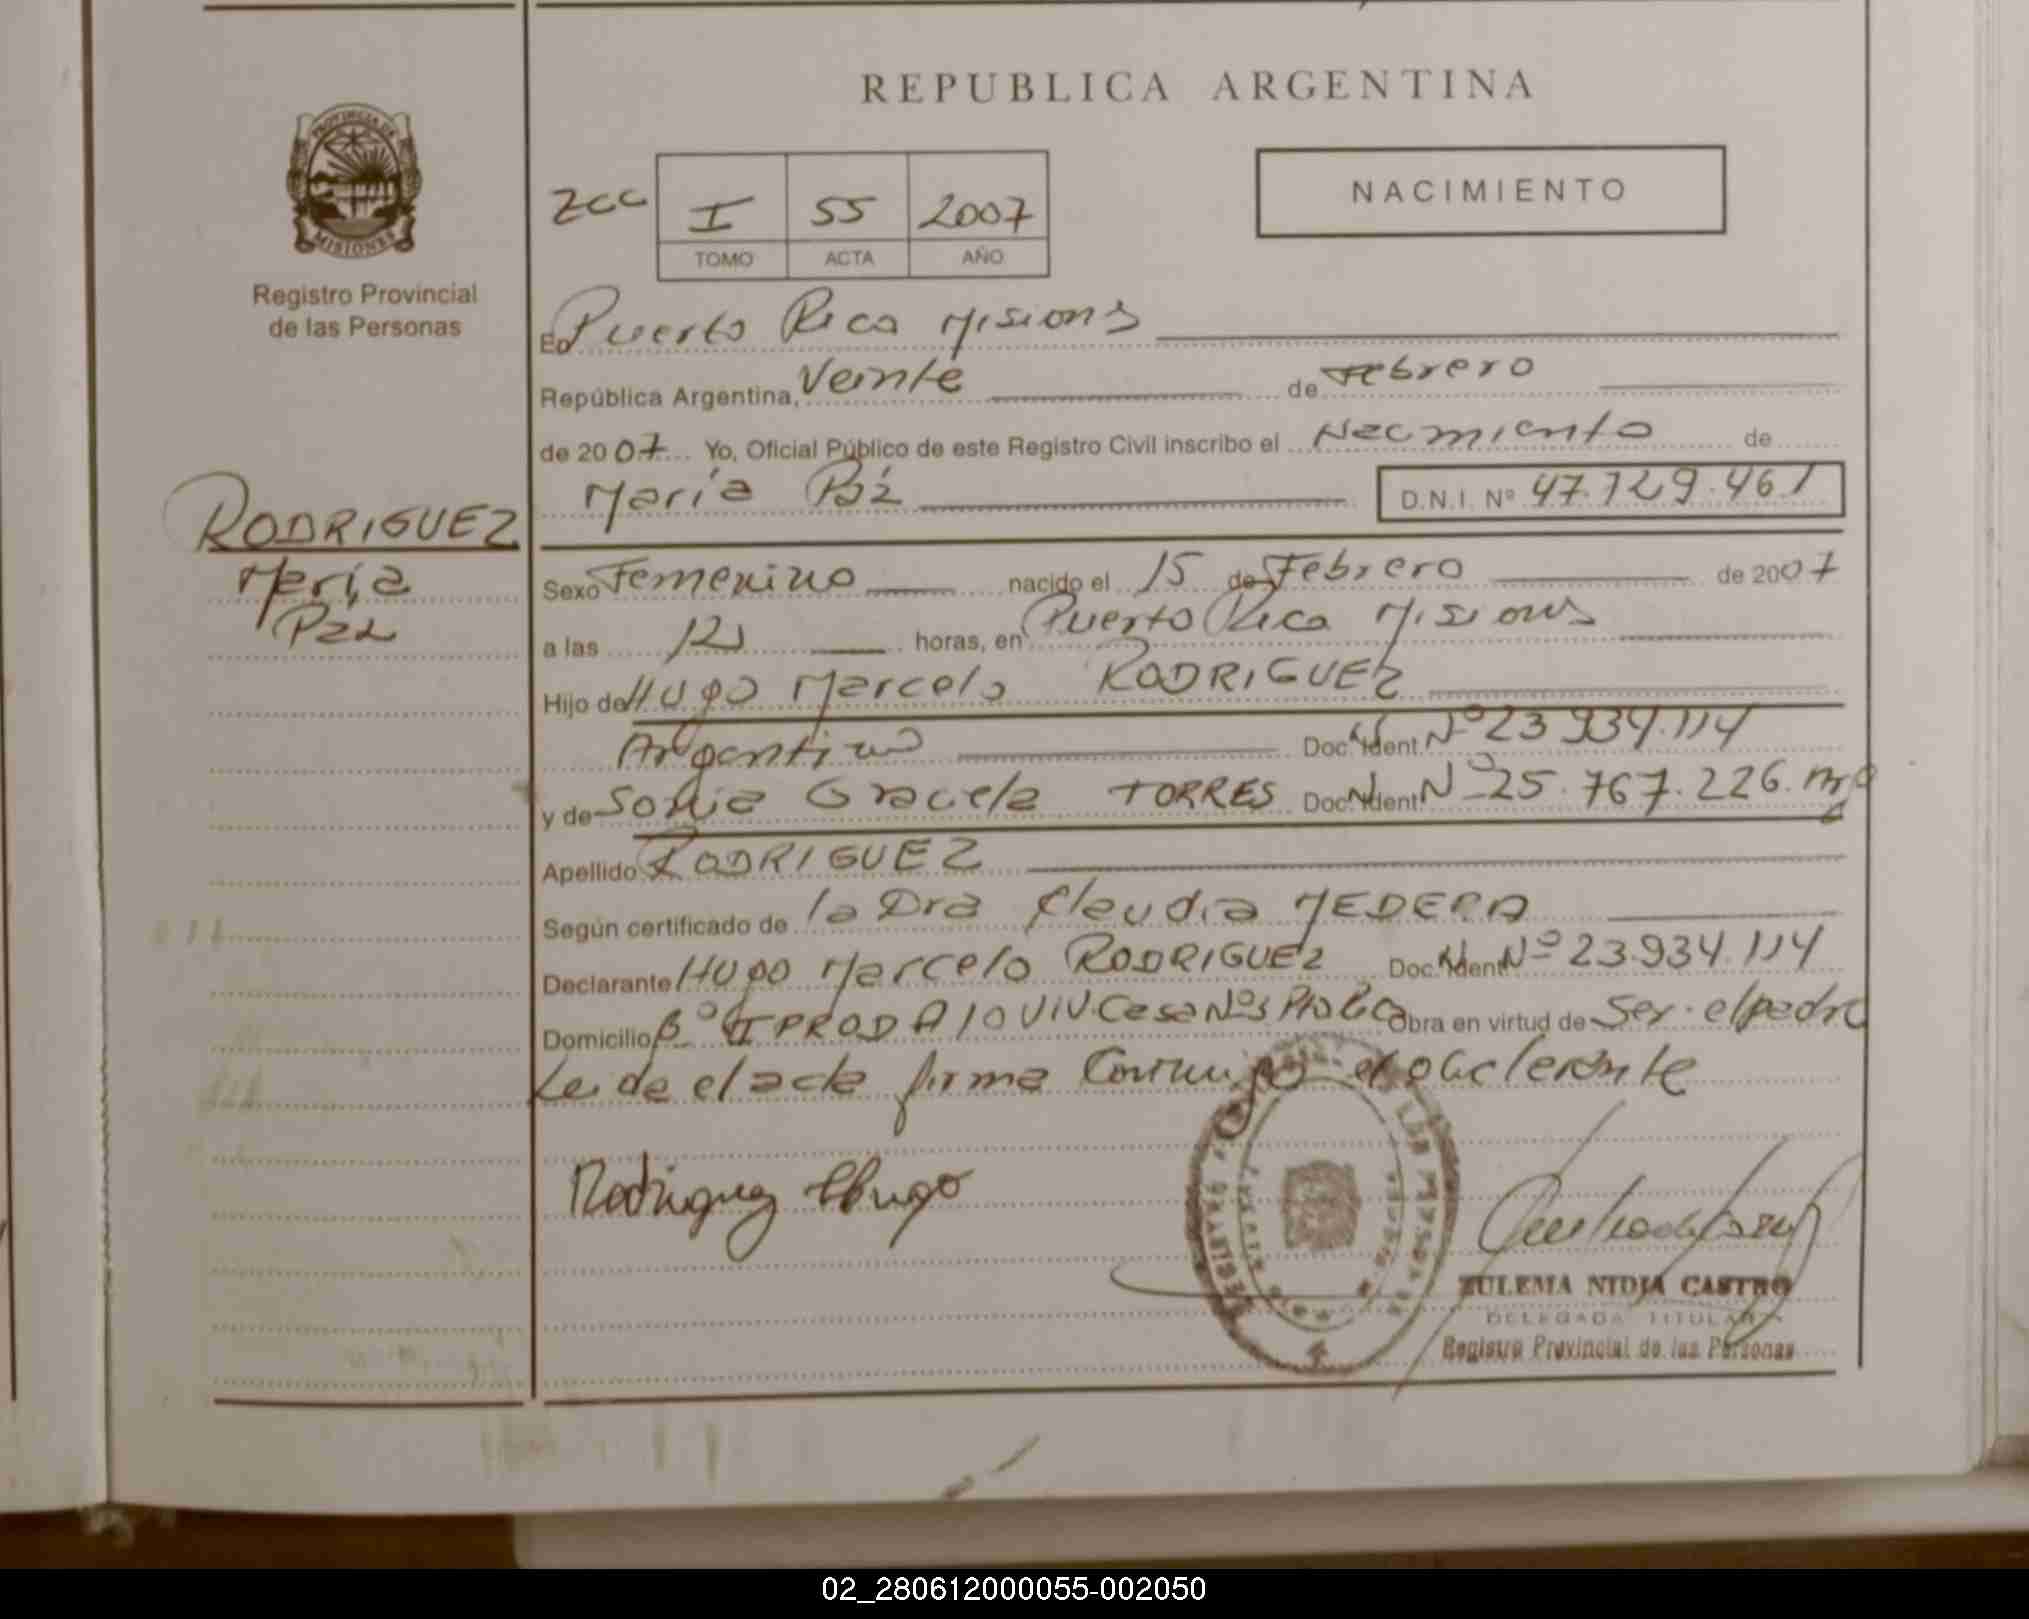 REPUBLICA ARGENTINA
PROVINCIA DE MISIONES
Registro Provincial
de las Personas
NACIMIENTO
I 55 2007
TOMO ACTA AÑO
En Puerto Rico Misiones
República Argentina, Veinte de Febrero
de 2007 Yo, Oficial Público de este Registro Civil inscribo el Nacimiento de
María Paz D.N.I. Nº 47.729.461
RODRIGUEZ
María
Paz
Sexo Femenino nacido el 15 de Febrero de 2007
a las 12 horas, en Puerto Rico Misiones
Hijo de Hugo Marcelo RODRIGUEZ
Argentino Doc. Ident. Nº 23 934.114
y de Sonia Graciela TORRES Doc. Ident. Nº 25.767.226
Apellido RODRIGUEZ
Según certificado de la Dra Claudia MEDERA
Declarante Hugo Marcelo RODRIGUEZ Doc. Ident. Nº 23.934.114
Domicilio Bº IPRODA 10 VIV. Casa Obra en virtud de Ser el padre
Leida el acta firma Conmigo el declarante
Rodriguez Hugo
ZULEMA NIDIA CASTRO
DELEGADA TITULAR
Registro Provincial de las Personas
02_280612000055-002050